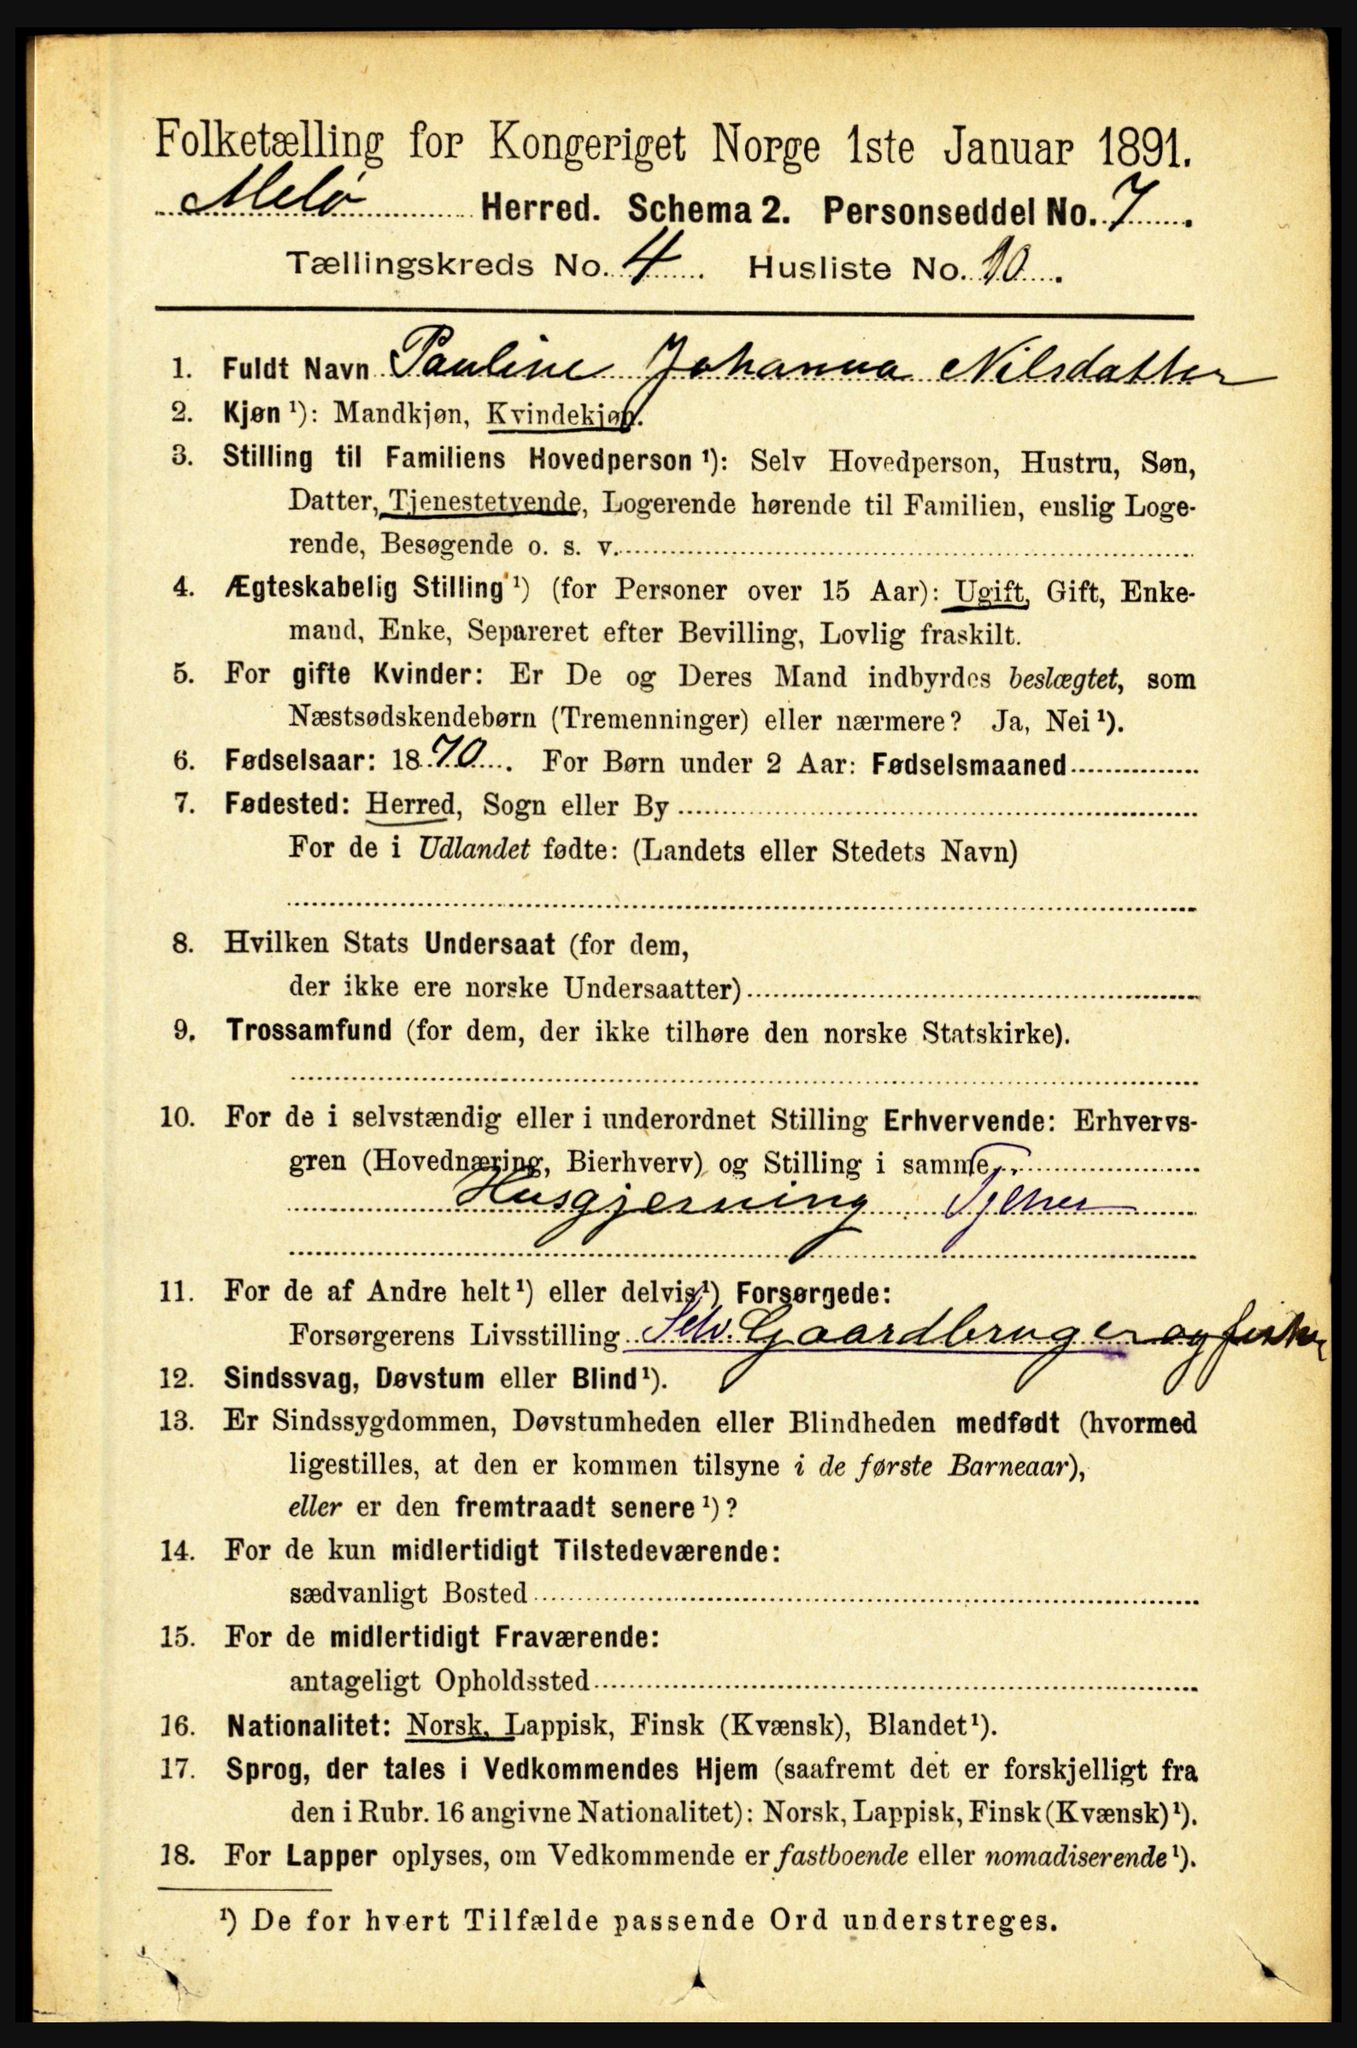 Folketælling for Kongeriget Norge 1ste Januar 1891.
Melø Herred. Schema 2. Personseddel No. 7.
Tællingskreds No. 4. Husliste No. 10.
1. Fuldt Navn Pauline Johanna Nilsdatter
2. Kjøn ¹): Mandkjøn, Kvindekjøn.
3. Stilling til Familiens Hovedperson ¹): Selv Hovedperson, Hustru, Søn,
Datter, Tjenestetyende, Logerende hørende til Familien, enslig Loge-
rende, Besøgende o. s. v.
4. Ægteskabelig Stilling ¹) (for Personer over 15 Aar): Ugift, Gift, Enke-
mand, Enke, Separeret efter Bevilling, Lovlig fraskilt.
5. For gifte Kvinder: Er De og Deres Mand indbyrdes beslægtet, som
Næstsødskendebørn (Tremenninger) eller nærmere? Ja, Nei ¹).
6. Fødselsaar: 1870. For Børn under 2 Aar: Fødselsmaaned
7. Fødested: Herred, Sogn eller By
For de i Udlandet fødte: (Landets eller Stedets Navn)
8. Hvilken Stats Undersaat (for dem,
der ikke ere norske Undersaatter)
9. Trossamfund (for dem, der ikke tilhøre den norske Statskirke).
10. For de i selvstændig eller i underordnet Stilling Erhvervende: Erhvervs-
gren (Hovednæring, Bierhverv) og Stilling i samme
Husgjerning Tjener
11. For de af Andre helt ¹) eller delvis ¹) Forsørgede:
Forsørgerens Livsstilling Selv. Gaardbruger og fisker
12. Sindssvag, Døvstum eller Blind ¹).
13. Er Sindssygdommen, Døvstumheden eller Blindheden medfødt (hvormed
ligestilles, at den er kommen tilsyne i de første Barneaar),
eller er den fremtraadt senere ¹)?
14. For de kun midlertidigt Tilstedeværende:
sædvanligt Bosted
15. For de midlertidigt Fraværende:
antageligt Opholdssted
16. Nationalitet: Norsk, Lappisk, Finsk (Kvænsk), Blandet ¹).
17. Sprog, der tales i Vedkommendes Hjem (saafremt det er forskjelligt fra
den i Rubr. 16 angivne Nationalitet): Norsk, Lappisk, Finsk (Kvænsk) ¹).
18. For Lapper oplyses, om Vedkommende er fastboende eller nomadiserende ¹).
¹) De for hvert Tilfælde passende Ord understreges.